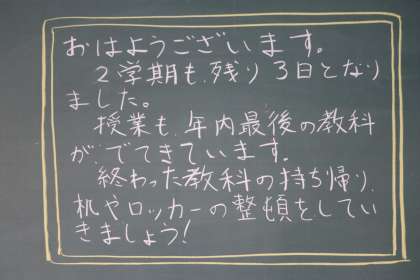 おはようございます。
2学期も、残り3日となり
ました。
授業も、年内最後の教科
が、でてきています。
終わった教科の持ち帰り、
机やロッカーの整頓を、してい
きましょう!